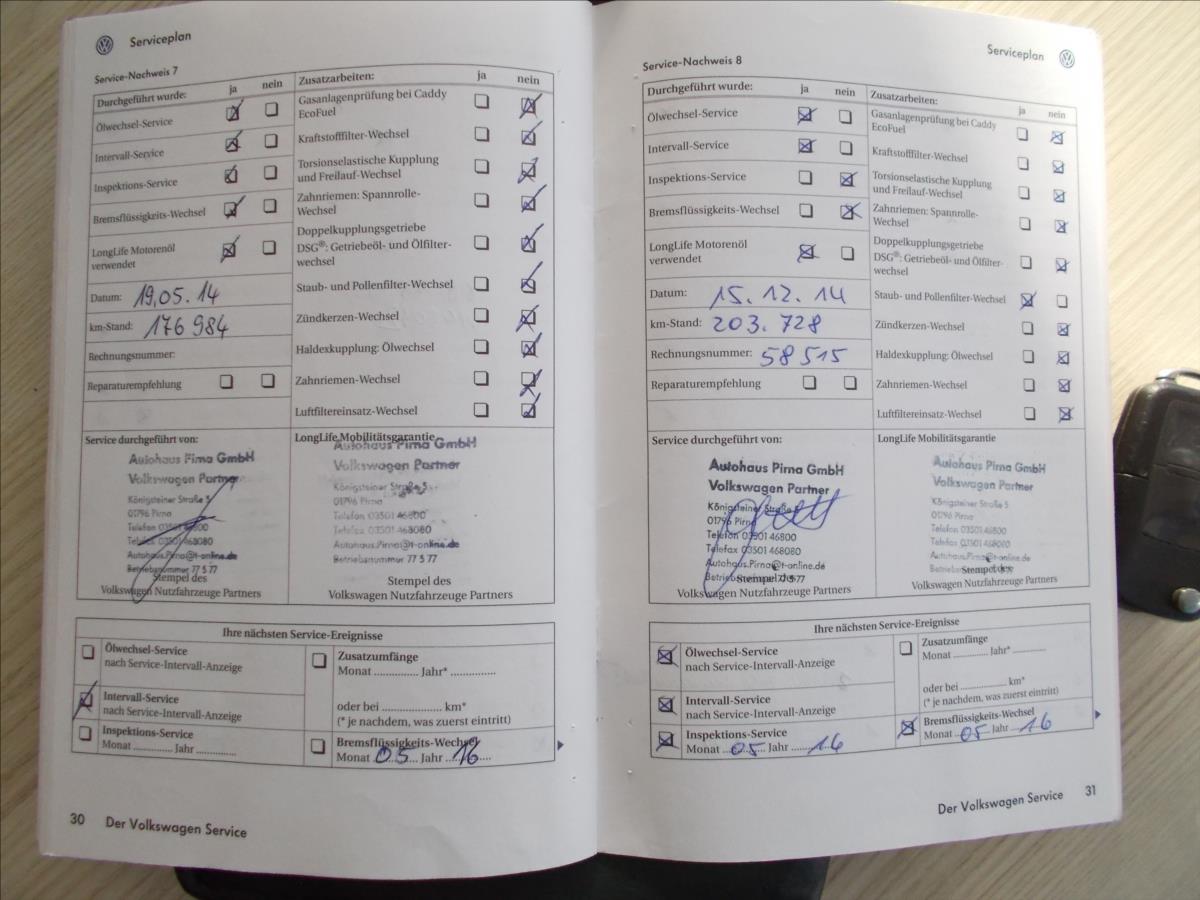 Serviceplan
Service-Nachweis 7
Durchgeführt wurde: ja nein
Ölwechsel-Service
Intervall-Service
Inspektions-Service
Bremsflüssigkeits-Wechsel
LongLife Motorenöl
verwendet
Datum: 19.05.14
km-Stand: 176 984
Rechnungsnummer:
Reparaturempfehlung
Zusatzarbeiten: ja nein
Gasanlagenprüfung bei Caddy
EcoFuel
Kraftstofffilter-Wechsel
Torsionselastische Kupplung
und Freilauf-Wechsel
Zahnriemen: Spannrolle-
Wechsel
Doppelkupplungsgetriebe
DSG®: Getriebeöl- und Ölfilter-
wechsel
Staub- und Pollenfilter-Wechsel
Zündkerzen-Wechsel
Haldexkupplung: Ölwechsel
Zahnriemen-Wechsel
Luftfiltereinsatz-Wechsel
Service durchgeführt von:
Autohaus Pirna GmbH
Volkswagen Partner
Königsteiner Straße 5
01796 Pirna
Telefon 03501 46800
Telefax 03501 468080
Autohaus.Pirna@t-online.de
Betriebsnummer 77 5 77
Stempel des
Volkswagen Nutzfahrzeuge Partners
LongLife Mobilitätsgarantie
Autohaus Pirna GmbH
Volkswagen Partner
Königsteiner Straße 5
01796 Pirna
Telefon 03501 46800
Telefax 03501 468080
Autohaus.Pirna@t-online.de
Betriebsnummer 77 5 77
Stempel des
Volkswagen Nutzfahrzeuge Partners
Ihre nächsten Service-Ereignisse
Ölwechsel-Service
nach Service-Intervall-Anzeige
Intervall-Service
nach Service-Intervall-Anzeige
Inspektions-Service
Monat ............ Jahr ............
Zusatzumfänge
Monat ............ Jahr* ............
oder bei .................... km*
(* je nachdem, was zuerst eintritt)
Bremsflüssigkeits-Wechsel
Monat 05 Jahr 16
30 Der Volkswagen Service
Serviceplan
Service-Nachweis 8
Durchgeführt wurde: ja nein
Ölwechsel-Service
Intervall-Service
Inspektions-Service
Bremsflüssigkeits-Wechsel
LongLife Motorenöl
verwendet
Datum: 15.12.14
km-Stand: 203.728
Rechnungsnummer: 58515
Reparaturempfehlung
Zusatzarbeiten: ja nein
Gasanlagenprüfung bei Caddy
EcoFuel
Kraftstofffilter-Wechsel
Torsionselastische Kupplung
und Freilauf-Wechsel
Zahnriemen: Spannrolle-
Wechsel
Doppelkupplungsgetriebe
DSG®: Getriebeöl- und Ölfilter-
wechsel
Staub- und Pollenfilter-Wechsel
Zündkerzen-Wechsel
Haldexkupplung: Ölwechsel
Zahnriemen-Wechsel
Luftfiltereinsatz-Wechsel
Service durchgeführt von:
Autohaus Pirna GmbH
Volkswagen Partner
Königsteiner Straße 5
01796 Pirna
Telefon 03501 46800
Telefax 03501 468080
Autohaus.Pirna@t-online.de
Stempel des
Volkswagen Nutzfahrzeuge Partners
LongLife Mobilitätsgarantie
Autohaus Pirna GmbH
Volkswagen Partner
Königsteiner Straße 5
01796 Pirna
Telefon 03501 46800
Telefax 03501 468080
Autohaus.Pirna@t-online.de
Stempel des
Volkswagen Nutzfahrzeuge Partners
Ihre nächsten Service-Ereignisse
Ölwechsel-Service
nach Service-Intervall-Anzeige
Intervall-Service
nach Service-Intervall-Anzeige
Inspektions-Service
Monat 05 Jahr 14
Zusatzumfänge
Monat ............ Jahr* ............
oder bei .................... km*
(* je nachdem, was zuerst eintritt)
Bremsflüssigkeits-Wechsel
Monat 05 Jahr 16
Der Volkswagen Service 31